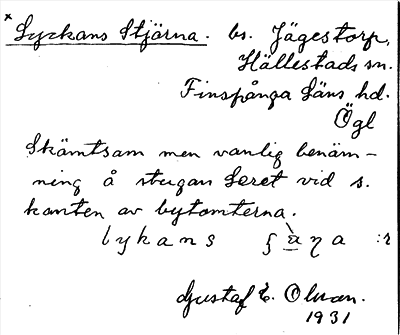 × Lyckans Stjärna. bs. Jägestorp,
Hällestads sn.
Finspånga Läns hd.
Ögl
Skämtsam men vanlig benäm-
ning å stugan Leret vid s.
kanten av bytomterna.
lykans ʃäɳa :r
Gustaf E. Olson.
1931